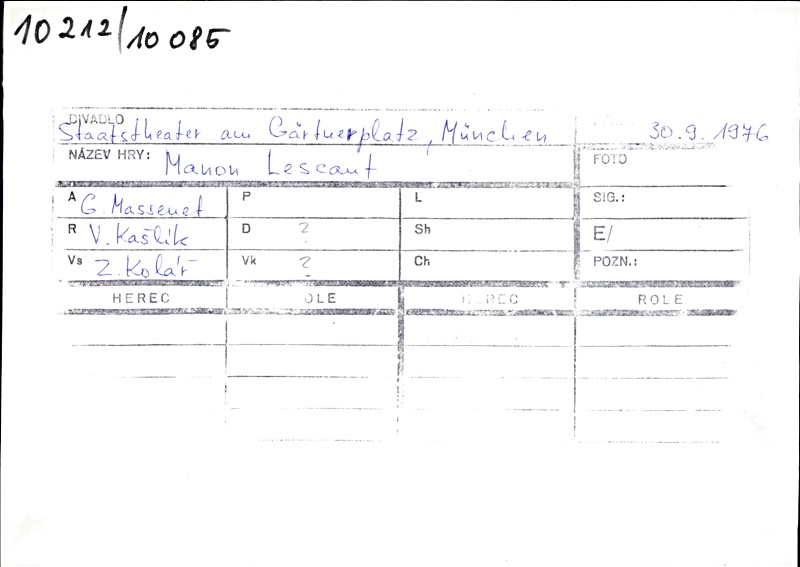 10212/10085
DIVADLO
Staatstheater am Gärtnerplatz, München
30.9.1976
NÁZEV HRY: Manon Lescaut
FOTO
A G. Massenet P L SIG.:
R V. Kašlík D ? Sh E/
Vs Z. Kolář Vk ? Ch POZN.:
HEREC OLE HEREC ROLE